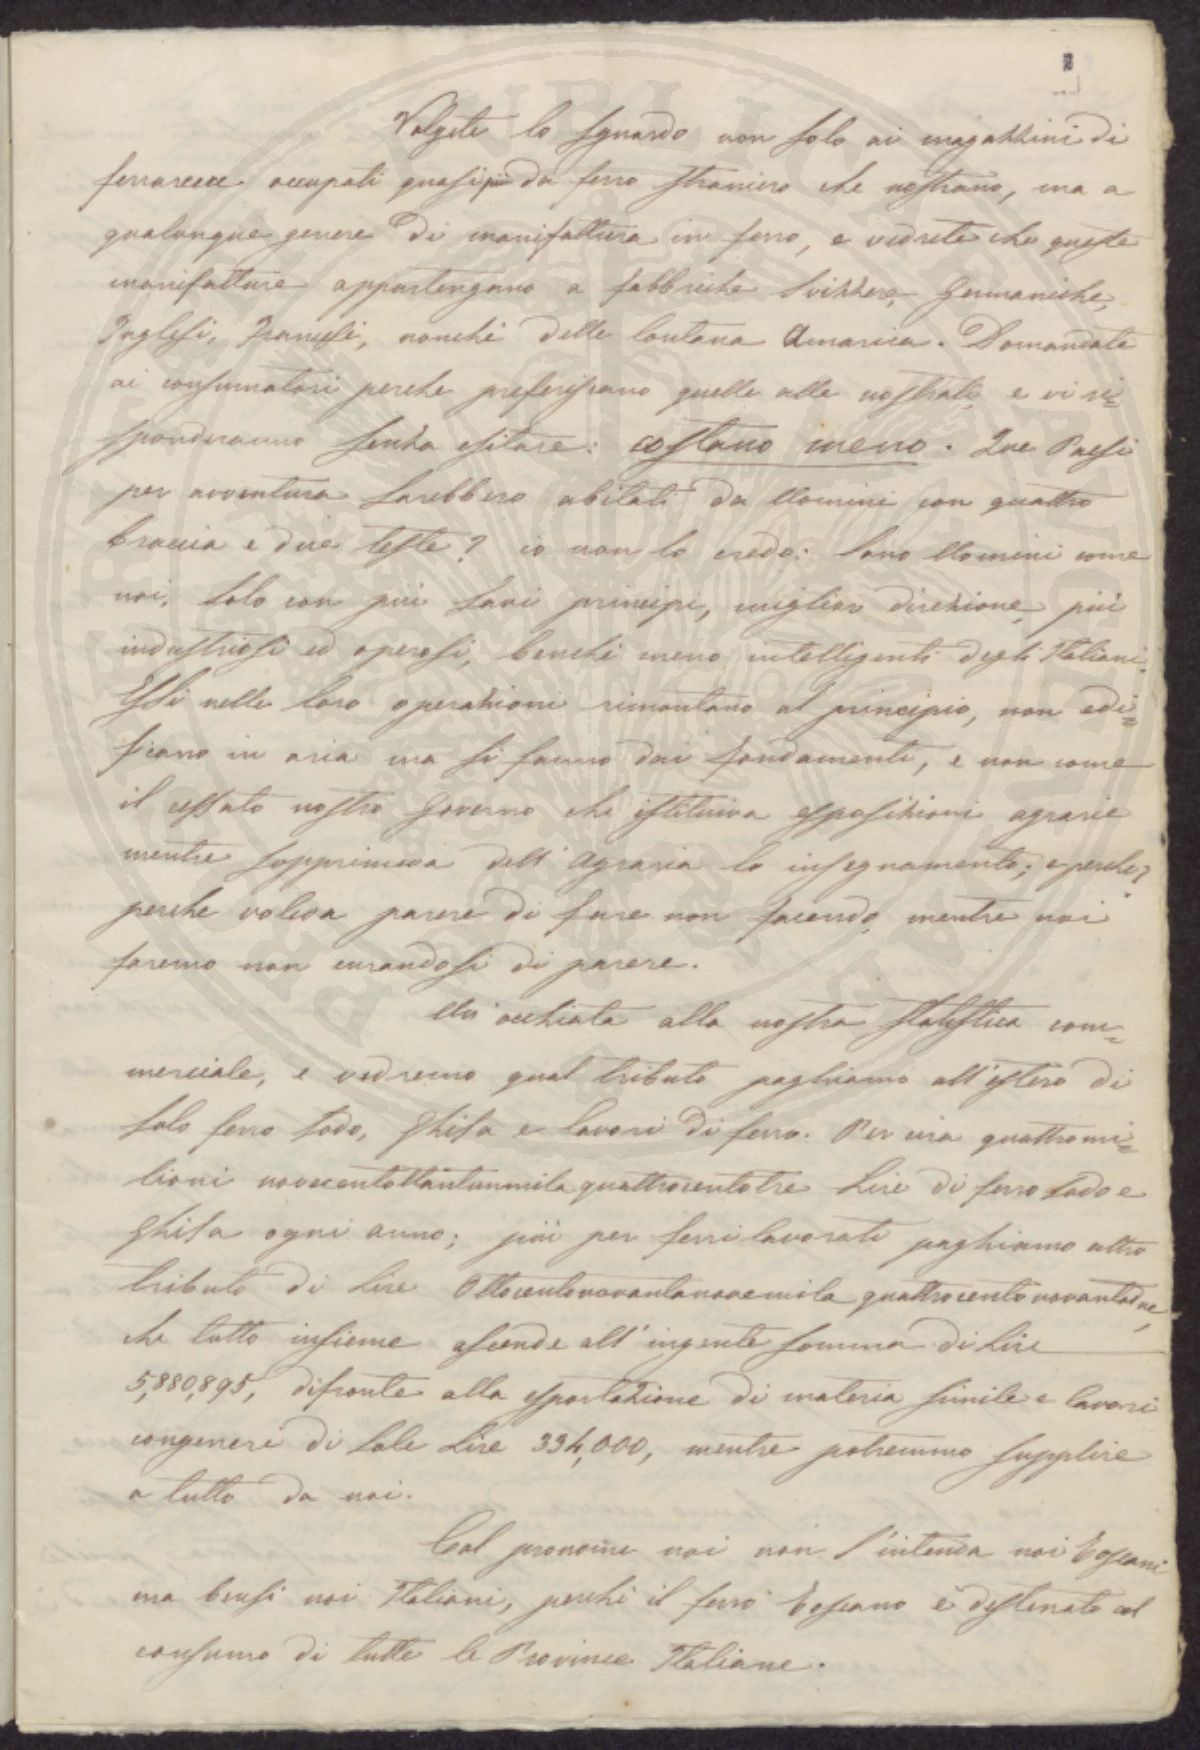 Volgete lo sguardo non solo ai magazzini di
ferrarecce occupati quasi più da ferro straniero che nostrano, ma a
qualunque genere di manifattura in ferro, e vedrete che queste
manifatture appartengano a fabbriche Svizzere, Germaniche,
Inglesi, Francesi, nonchè della lontana America. Domandate
ai consumatori perche preferiscano quelle alle nostrali, e vi ri=
sponderanno senza esitare: costano meno. Que Paesi
per avventura sarebbero abitati da Uomini con quattro
braccia e due teste? io non lo credo: Sono Uomini come
noi, solo con più savi principj, miglior direzione, più
industriosi ed operosi, benchè meno intelligenti degli Italiani.
Essi nelle loro operazioni rimontano al principio, non edi=
ficano in aria ma si fanno dai fondamenti, e non come
il cessato nostro Governo che istituiva esposizioni agrarie
mentre sopprimeva dell'Agraria lo insegnamento; e perche?
perche voleva parere di fare non facendo, mentre noi
faremo non curandosi di parere.
Un'occhiata alla nostra statistica com=
merciale, e vedremo qual tributo paghiamo all'estero di
solo ferro sodo, Ghisa e lavori di ferro. Per circa quattromi=
lioni novecentottantunmila quattrocentotre Lire di ferro sodo e
Ghisa ogni anno; più per ferri lavorati paghiamo altro
tributo di Lire Ottocentonovantanovemila quattrocentonovantadue,
che tutto insieme ascende all'ingente somma di Lire
5,880,895, difronte alla esportazione di materia simile e lavori
congeneri di sole Lire 334,000, mentre potremmo supplire
a tutto da noi.
Col pronome noi non s'intenda noi Toscani
ma bensì noi Italiani, perchè il ferro Toscano è destinato al
consumo di tutte le Province Italiane.